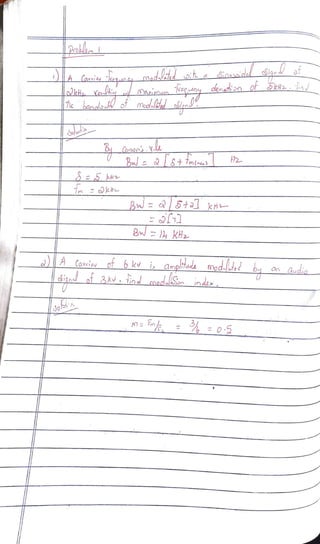 Problem 1
1) A carrier frequency modulated with a sinusoidal signal of
2kHz resulting maximum frequency deviation of 5kHz. Find
the bandwidth of modulated signal.
Soluti
By carson's rule
BW = 2 [δ + fm(max)] Hz
δ = 5 kHz
fm = 2kHz
BW = 2 [5+2] kHz
= 2[7]
BW = 14 kHz
2) A carrier of 6 kv is amplitude modulated by an audio
signal of 3kv. Find modulation index.
Soluti
= 3/6 = 0.5